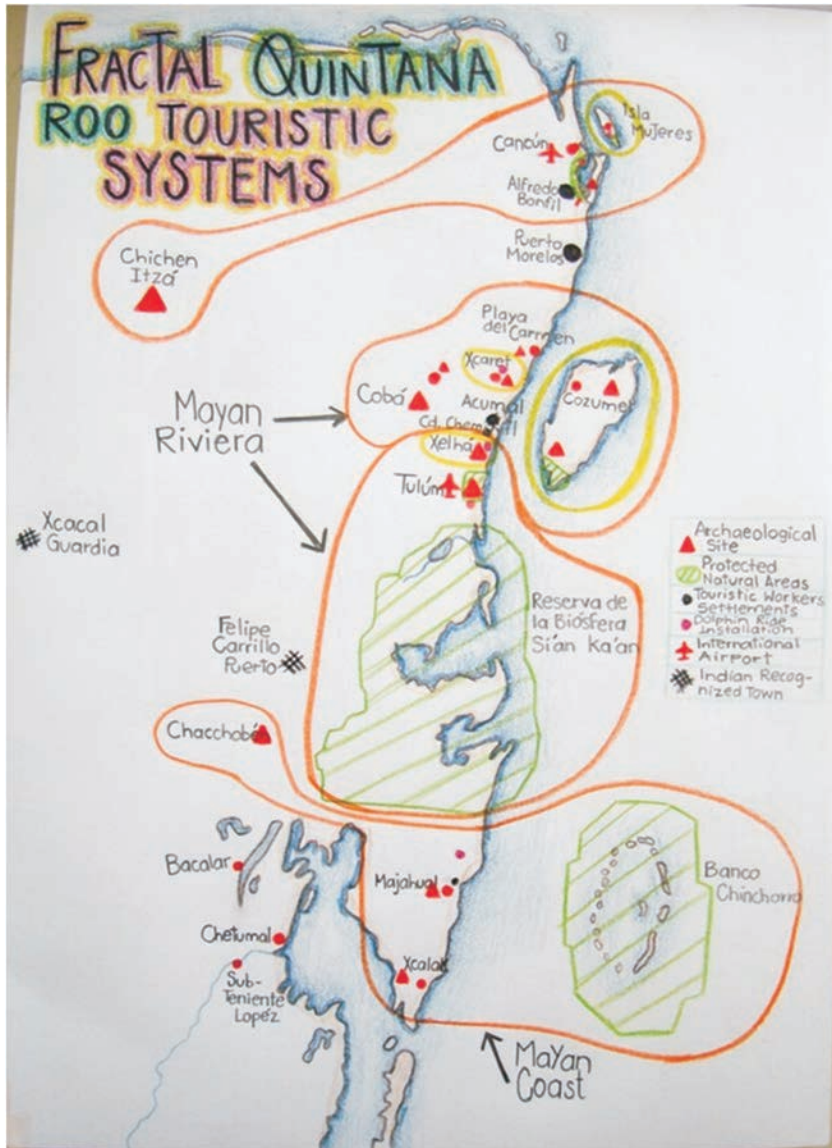 FRACTAL QUINTANA
ROO TOURISTIC
SYSTEMS
Isla
Mujeres
Cancún
Alfredo
Bonfil
Puerto
Morelos
Chichen
Itzá
Playa
del Carmen
Xcaret
Cobá
Cozumel
Acumal
Cd. Chemuyil
Mayan
Riviera
Xelhá
Tulúm
Xcacal
Guardia
Archaeological
Site
Protected
Natural Areas
Touristic Workers
Settlements
Dolphin Ride
Installation
International
Airport
Indian Recog-
nized Town
Reserva de
la Biósfera
Si'an Ka'an
Felipe
Carrillo
Puerto
Chacchobé
Bacalar
Majahual
Banco
Chinchorro
Chetumal
Xcalak
Sub-
Teniente
Lopéz
Mayan
Coast